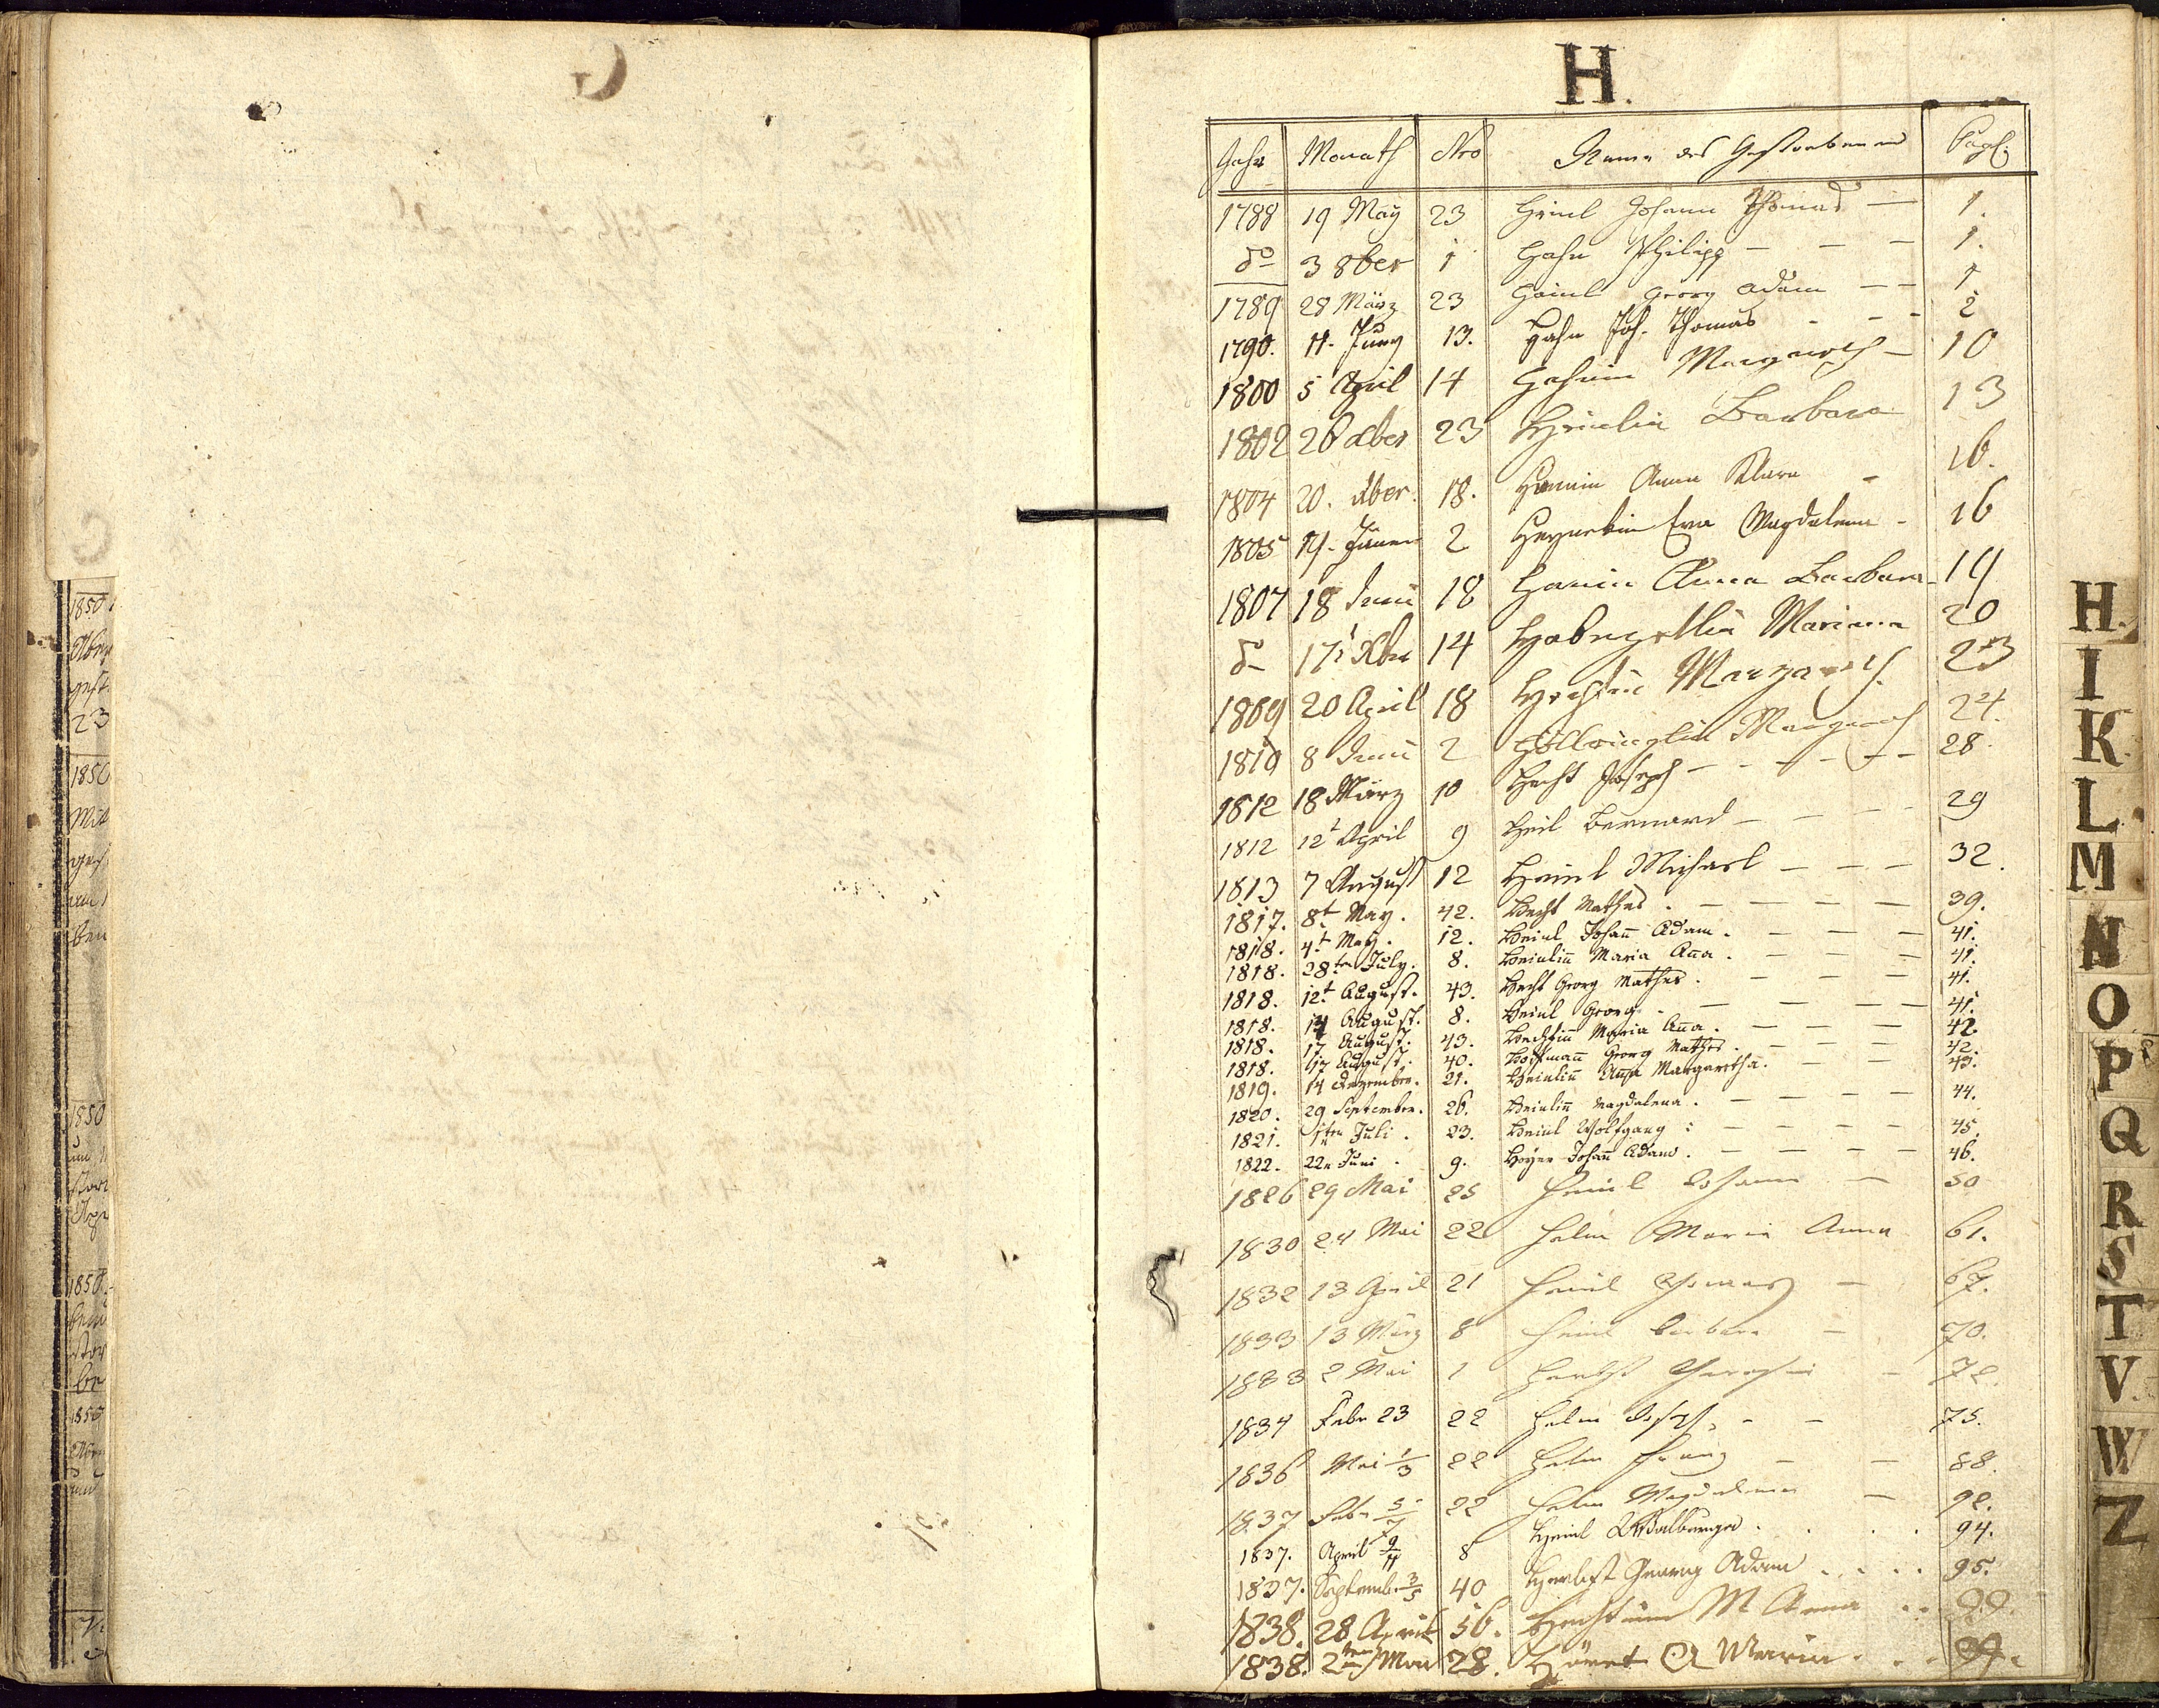 H.
Jahr Monath Nro Name des Gestorbenen Pagf.
1788 19 May 23 Heinl Johann Thomas — 1.
do 3 8ber 1 Hahn Philipp — — — 1.
1789 28 März 23 Heinl Georg Adam — — 1
1790. 11. Juny 13. Hahn Joh. Thomas - - - 2
1800 5 April 14 Hahnin Margareth — 10
1802 26 Xber 23 Heinlin Barbara 13
1804 20. Xber. 18. Anna Klara - 16.
1805 Jäner 2 Eva Magdalena - 16
1807 18 Juni 18 Anna Barbara - 19
do 17t Xber 14 Mariana 20
1809 20 April 18 Hechtin Margareth 23
1810 8 Juni 2 Margareth 24.
1812 18 März 10 Hecht Joseph - - - - - - 28.
1812 12t April 9 Heil Bernard — — — 29
1813 7 August 12 Heinl Michael — — — 32.
1817. 8t May. 42. Hecht Mathes. — — — — 39.
1818. 4t May. 12. Heinl Johan̄ Adam. — — — 41.
1818. 28ten July. 8. Heinlin̄ Maria An̄a. — — — — 41.
1818. 12t August. 43. Hecht Georg Mathes. — — — 41.
1818. 14 August. 8. Heinl Georg. — — — — 41.
1818. 17 August. 43. Hechtin̄ Maria An̄a. — — — 42.
1818. 17 August. 40. Hoffman̄ Georg Mathes. — — — 42.
1819. 14 Dezember. 21. Heinlin̄ An̄a Margaretha. — — 43.
1820. 29 September. 26. Heinlin̄ Magdalena. — — — — 44.
1821. 1ten Juli. 23. Heinl Wolfgang: — — — — 45.
1822. 22n Juni. 9. Hoyer Johan̄ Adam. — — — — 46.
1826 29 Mai 25 Heinl Johann — 50
1830 24 Mai 22 Helm Maria Anna 61.
1832 13 April 21 Heinl Thomas — 67.
1833 13 März 8 Heinl Barbara — 70.
1833 2 Mai 1 Herbst Theresia - 72.
1834 Febr 23 22 Helm Joseph - - 75.
1836 Mai 1/3 22 Helm Franz — — 88.
1837 Febr 5/7 22 Helm Magdalena — 92.
1837. April 9/11 8 Heinl Walburga. . . . 94.
1837. Septemb. 3/5 40 Herbst Georg Adam . . . . 95.
1838. 28 April 56. M Anna . . 99.
1838. 2ten Mai 28. Maria . . .
H.
I
K.
L.
M
N
O
P
Q
R
S
T
V.
W
Z
1850
23
1850
1850
1850
1850